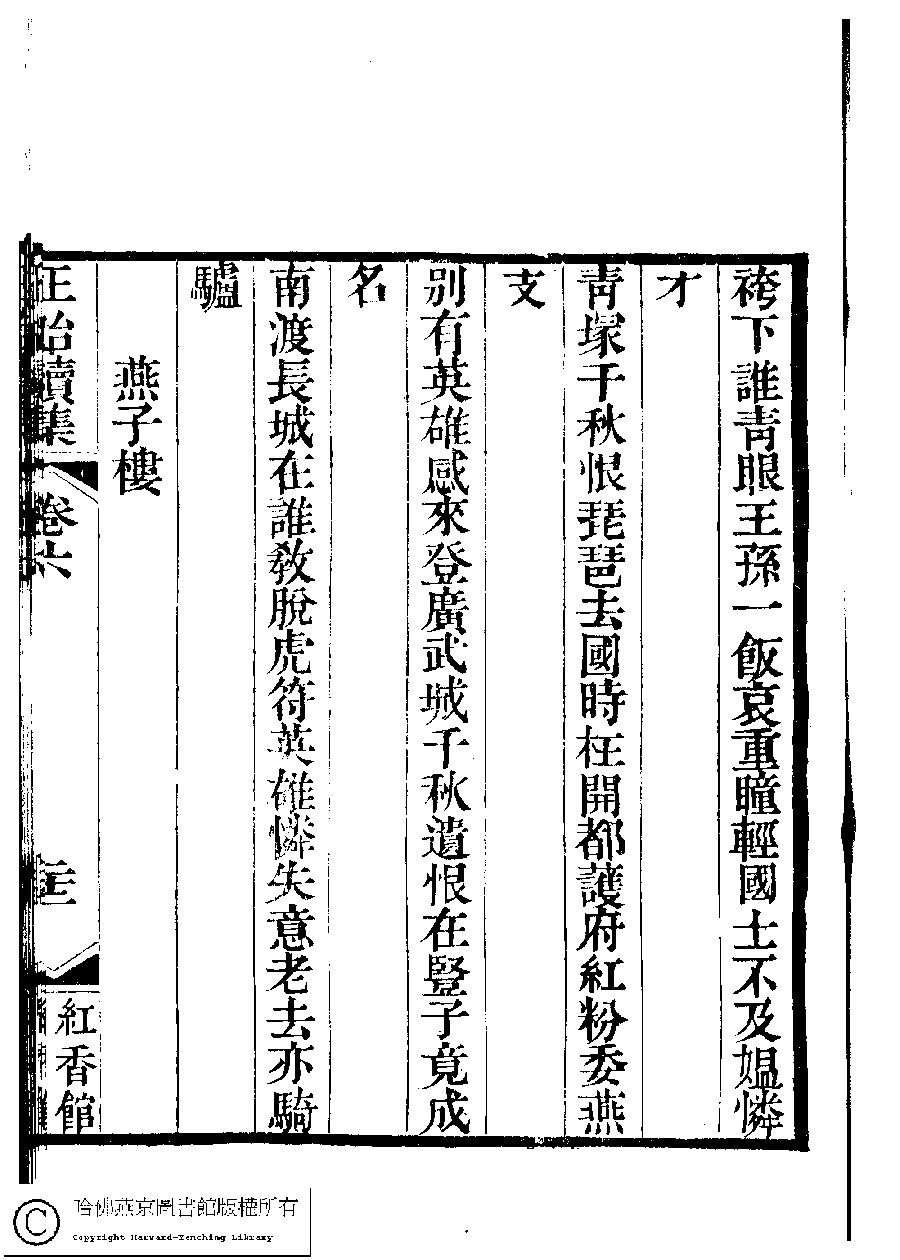 袴下誰青眼王孫一飯哀重瞳輕國士不及媼憐
才
青塚千秋恨琵琶去國時枉開都護府紅粉委燕
支
別有英雄感來登廣武城千秋遺恨在豎子竟成
名
南渡長城在誰教脫虎符英雄憐失意老去亦騎
驢
燕子樓
正始續集
卷六
紅香館
哈佛燕京圖書館版權所有
Copyright Harvard-Yenching Library